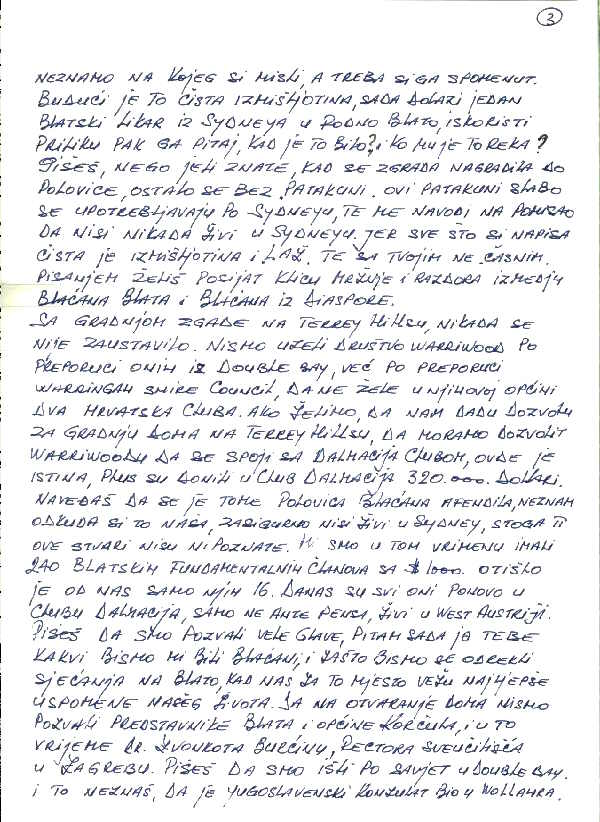 3
NEZNAMO NA KOJEG SI MISLI, A TREBA SI GA SPOMENUT.
BUDUĆI JE TO ČISTA IZMIŠLJOTINA, SADA DOLAZI JEDAN
BLATSKI LIKAR IZ SYDNEYA U RODNO BLATO, ISKORISTI
PRILIKU PAK GA PITAJ, KAD JE TO BILO? I KO MU JE TO REKA?
PIŠEŠ, NEGO JELI ZNATE, KAD SE ZGRADA NAGRADILA DO
POLOVICE, OSTALO SE BEZ PATAKUNI. OVI PATAKUNI SLABO
SE UPOTREBLJAVAJU PO SYDNEYU, TE ME NAVODI NA POMISAO
DA NISI NIKADA ŽIVI U SYDNEYU. JER SVE ŠTO SI NAPISA
ČISTA JE IZMIŠLJOTINA I LAŽ. TE SA TVOJIM NE ČASNIM
PISANJEM ŽELIŠ POSIJAT KLICU MRŽNJE I RAZDORA IZMEDJU
BLAĆANA BLATA I BLAĆANA IZ DIASPORE.
SA GRADNJOM ZGADE NA TERREY HILLSU, NIKADA SE
NIJE ZAUSTAVILO. NISMO UZELI DRUŠTVO WARRIWOOD PO
PREPORUCI ONIH IZ DOUBLE BAY, VEĆ PO PREPORUCI
WARRINGAH SHIRE COUNCIL, DA NE ŽELE U NJIHOVOJ OPĆINI
DVA HRVATSKA CLUBA. AKO ŽELIMO, DA NAM DADU DOZVOLU
ZA GRADNJU DOMA NA TERREY HILLSU, DA MORAMO DOZVOLIT
WARRIWOODU DA SE SPOJI SA DALMACIJA CLUBOM, OVDE JE
ISTINA, PLUS SU DONILI U CLUB DALMACIJA 320.000. DOLLARI.
NAVEDAŠ DA SE JE TOME POLOVICA BLAĆANA AFENDILA, NEZNAM
ODKUDA SI TO NAŠA, ZASIGURNO NISI ŽIVI U SYDNEY, STOGA TI
OVE STVARI NISU NI POZNATE. MI SMO U TOM VRIMENU IMALI
240 BLATSKIH FUNDAMENTALNIH ČLANOVA SA $1000. OTIŠLO
JE OD NAS SAMO NJIH 16. DANAS SU SVI ONI PONOVO U
CLUBU DALMACIJA, SAMO NE ANTE PENSA, ŽIVI U WEST AUSTRIJI.
PIŠEŠ DA SMO POZVALI VELE GLAVE, PITAM SADA JA TEBE
KAKVI BISMO MI BILI BLAĆANI, I ZAŠTO BISMO SE ODREKLI
SJEĆANJA NA BLATO, KAD NAS ZA TO MJESTO VEŽU NAJLJEPŠE
USPOMENE NAŠEG ŽIVOTA. DA NA OTVARANJE DOMA NISMO
POZVALI PREDSTAVNIKE BLATA I OPĆINE KORČULA, I U TO
VRIJEME DR. ZVONKOTA BURČINU, RECTORA SVEUČILIŠĆA
U ZAGREBU. PIŠEŠ DA SMO IŠLI PO SAVJET U DOUBLE BAY.
I TO NEZNAŠ, DA JE YUGOSLAVENSKI KONZULAT BIO U WOLLAHRA.